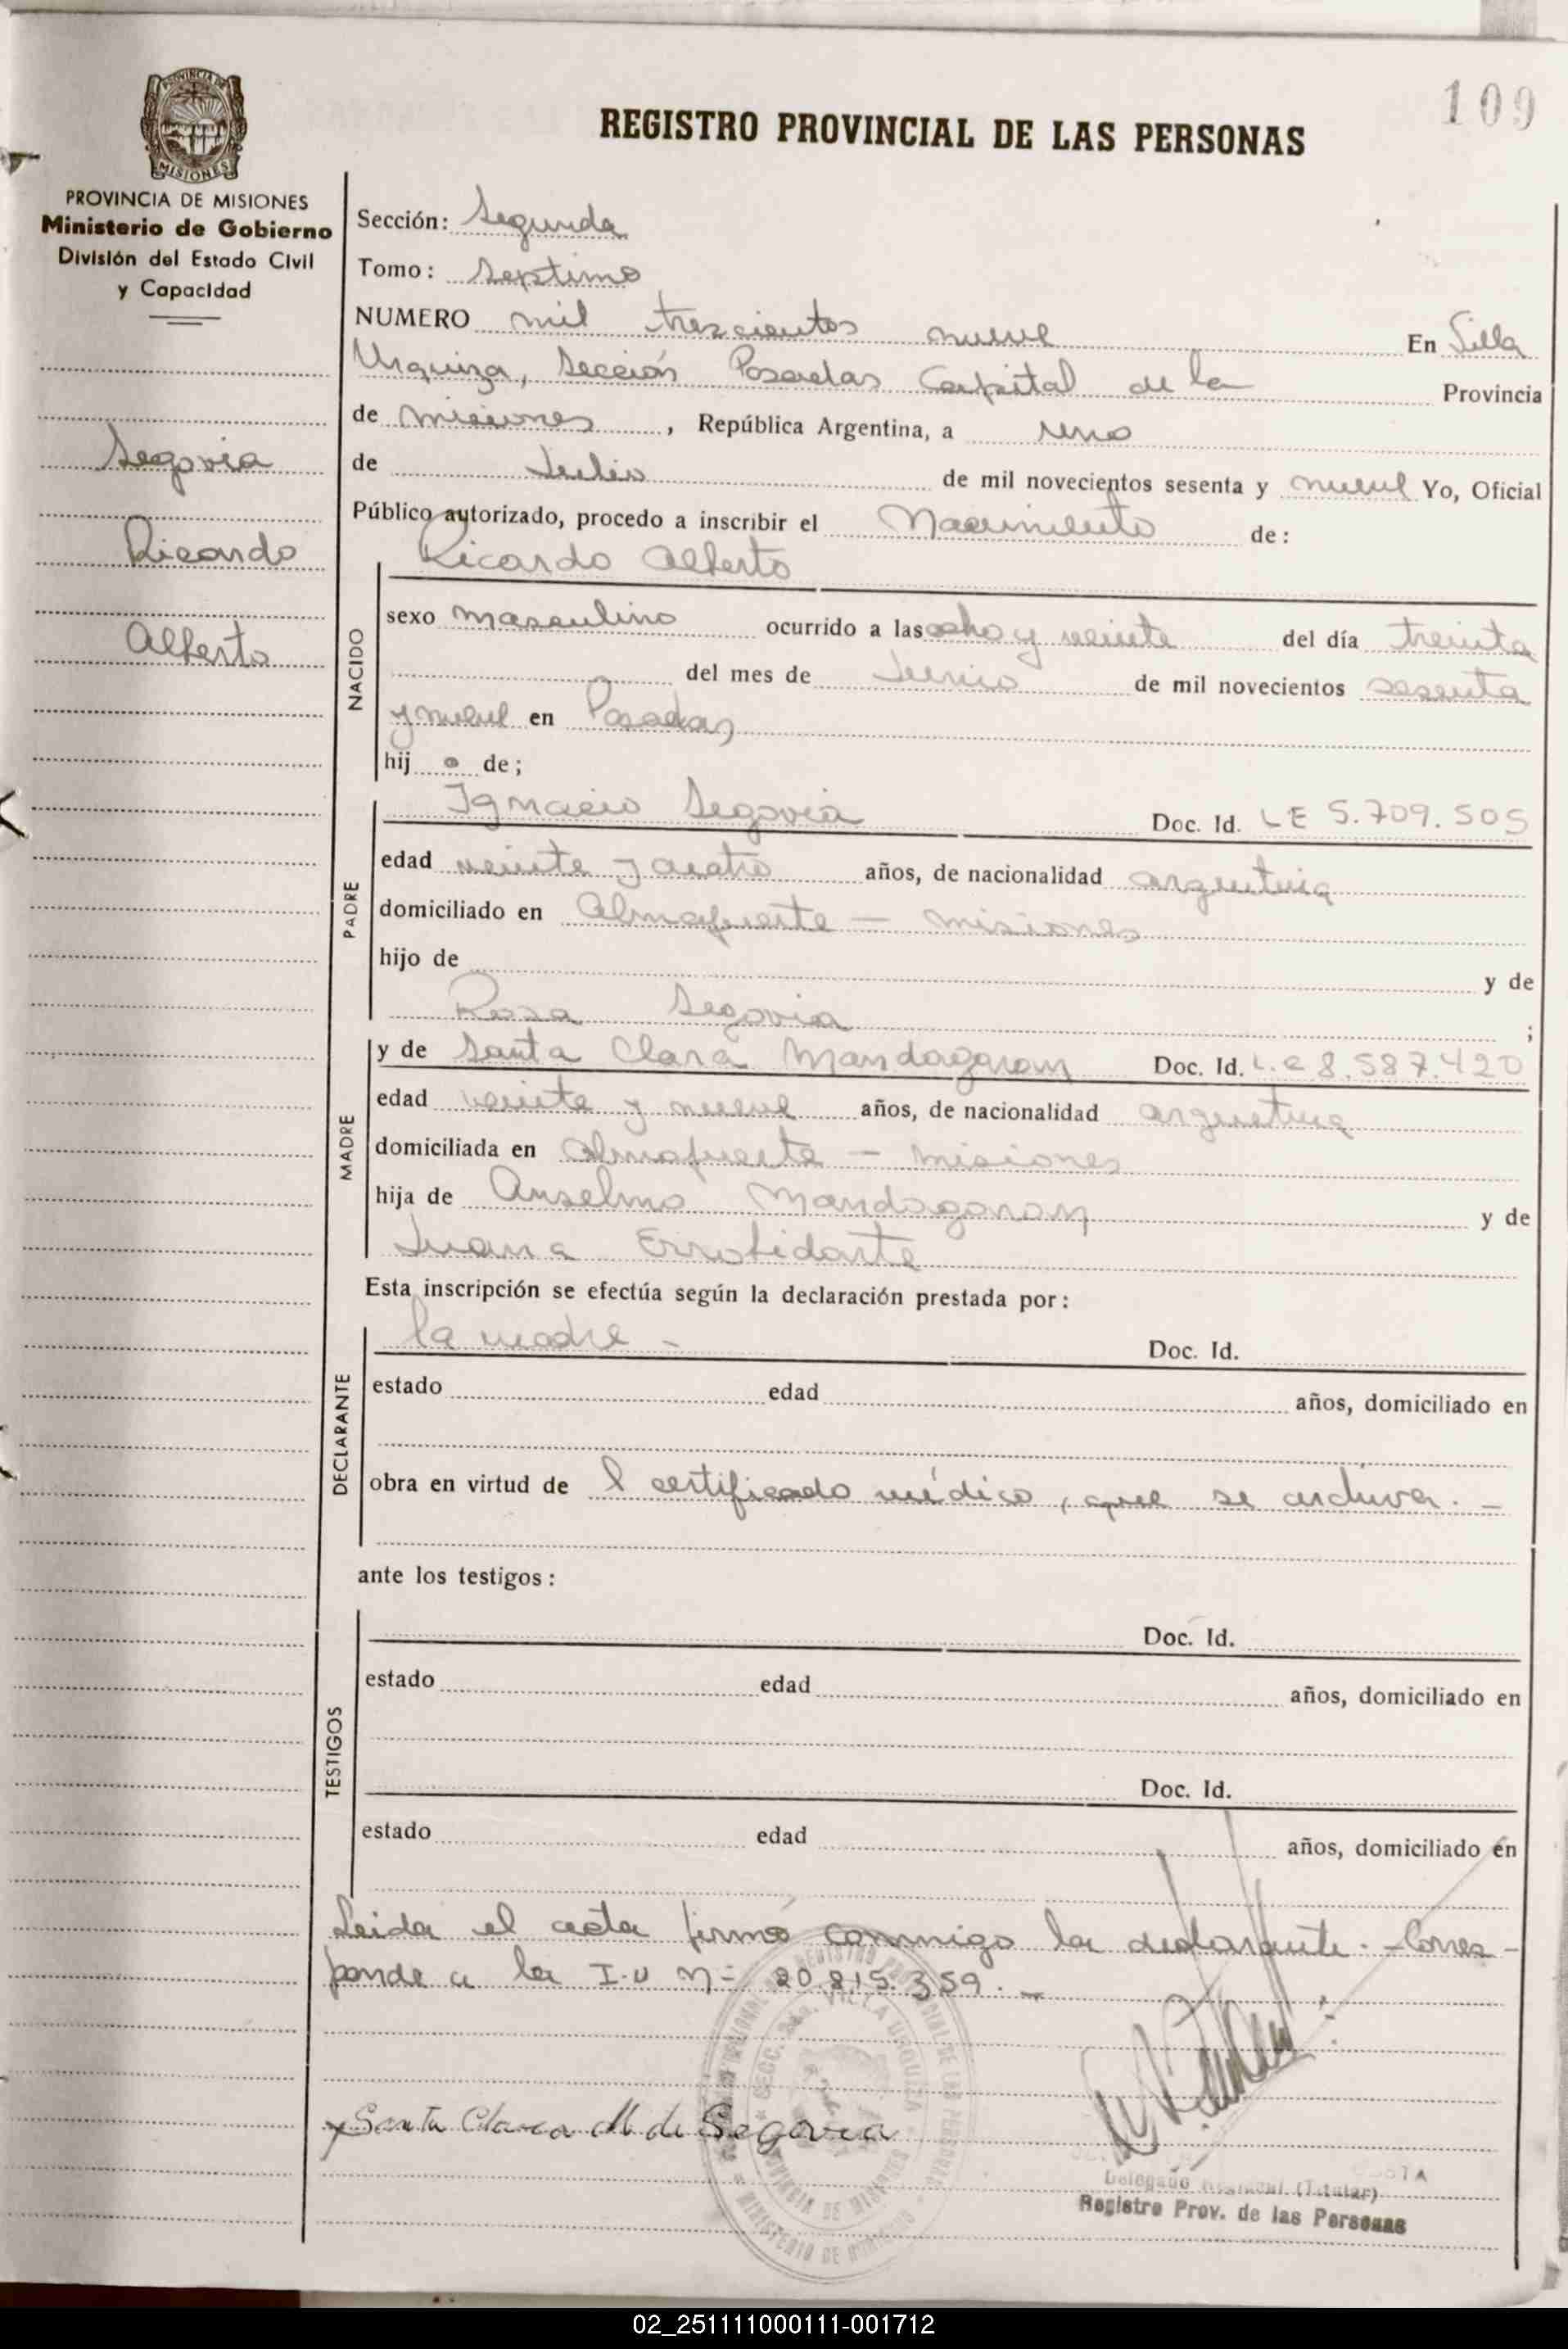 109
PROVINCIA DE MISIONES
REGISTRO PROVINCIAL DE LAS PERSONAS
PROVINCIA DE MISIONES
Ministerio de Gobierno
División del Estado Civil
y Capacidad
Segovia
Ricardo
Alberto
Sección: Segunda
Tomo: Septimo
NUMERO mil trescientos nueve En Villa
Urquiza, Sección Posadas Capital de la Provincia
de Misiones, República Argentina, a uno
de Julio de mil novecientos sesenta y nueve Yo, Oficial
Público autorizado, procedo a inscribir el Nacimiento de:
Ricardo Alberto
NACIDO
sexo masculino ocurrido a las ocho y veinte del día treinta
del mes de Junio de mil novecientos sesenta
y nueve en Posadas
hij o de;
PADRE
Ignacio Segovia Doc. Id. LE 5.709.505
edad veinte y cuatro años, de nacionalidad argentina
domiciliado en Almafuerte – Misiones
hijo de y de
Rosa Segovia ;
MADRE
y de Santa Clara Mandagaran Doc. Id. L.C 8.587.420
edad veinte y nueve años, de nacionalidad argentina
domiciliada en Almafuerte – Misiones
hija de Anselmo Mandagaran y de
Juana
Esta inscripción se efectúa según la declaración prestada por:
DECLARANTE
la madre - Doc. Id.
estado edad años, domiciliado en
obra en virtud de l certificado médico, que se archiva. –
ante los testigos:
TESTIGOS
Doc. Id.
estado edad años, domiciliado en
Doc. Id.
estado edad años, domiciliado en
Leida el acta firmó conmigo la declarante. - Corres-
ponde a la I.U Nº 20.815.359. –
SECC. 2a. VILLA URQUIZA
PROVINCIA DE MISIONES
MINISTERIO DE
x Santa Clara M de Segovia
Delegado (Titular)
Registro Prov. de las Personas
02_251111000111-001712